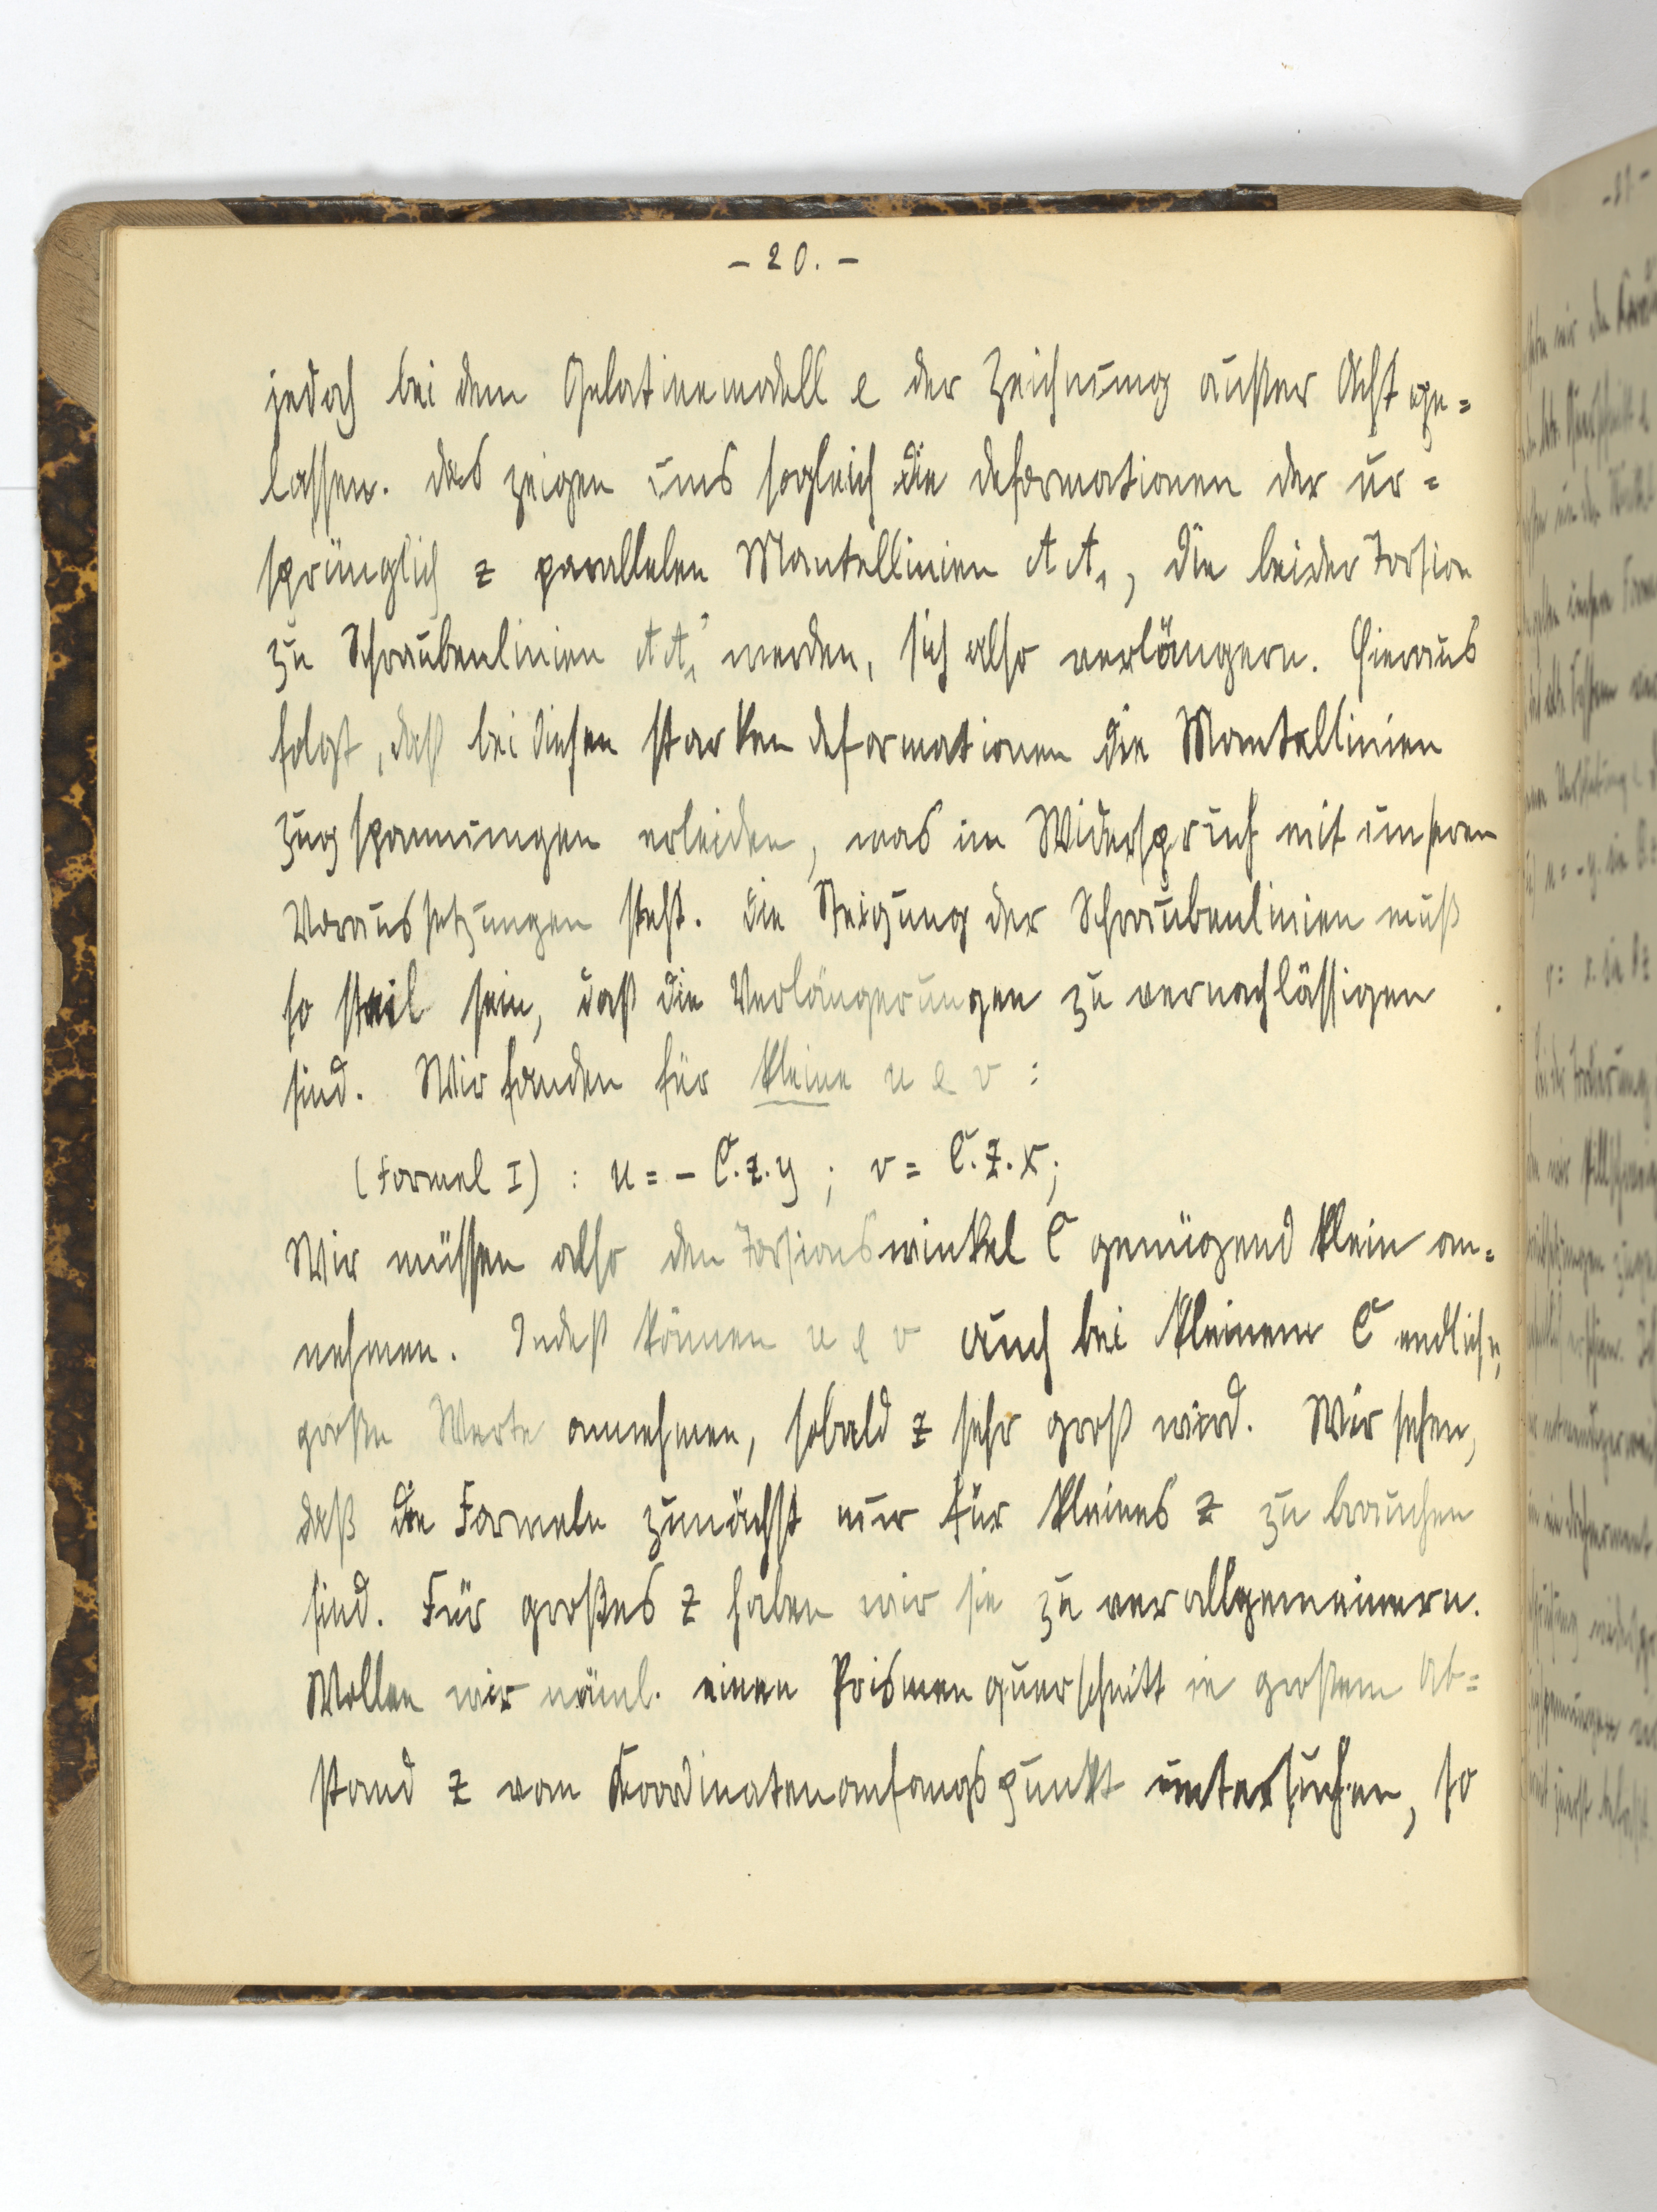 - 20. -
jedoch bei dem Gelatinemodell & der Zeichnung außer Acht ge=
lassen. Das zeigen uns sogleich die Deformationen der ur=
sprünglich z parallelen Mantellinien AA₁, die bei der Torsion
zu Schraubenlinien AA₁' werden, sich also verlängern. Hieraus
folgt, daß bei diesen starken Deformationen die Mantellinien
Zugspannungen erleiden, was im Widerspruch mit unseren
Voraussetzungen steht. Die Steigung der Schraubenlinien muß
so steil sein, daß die Verlängerungen zu vernachlässigen
sind. Wir fanden für kleine u & v :
(Formel I) : u = - C.z.y ; v = C.z.x;
Wir müssen also den Torsionswinkel C genügend klein an=
nehmen. Indeß können u & v auch bei kleinem C endliche,
große Werte annehmen, sobald z sehr groß wird. Wir sehen,
daß die Formeln zunächst nur für kleines z zu brauchen
sind. Für großes z haben wir sie zu verallgemeinern.
Wollen wir näml. einen Prismenquerschnitt in großem Ab=
stand z vom Koordinatenanfangspunkt untersuchen, so